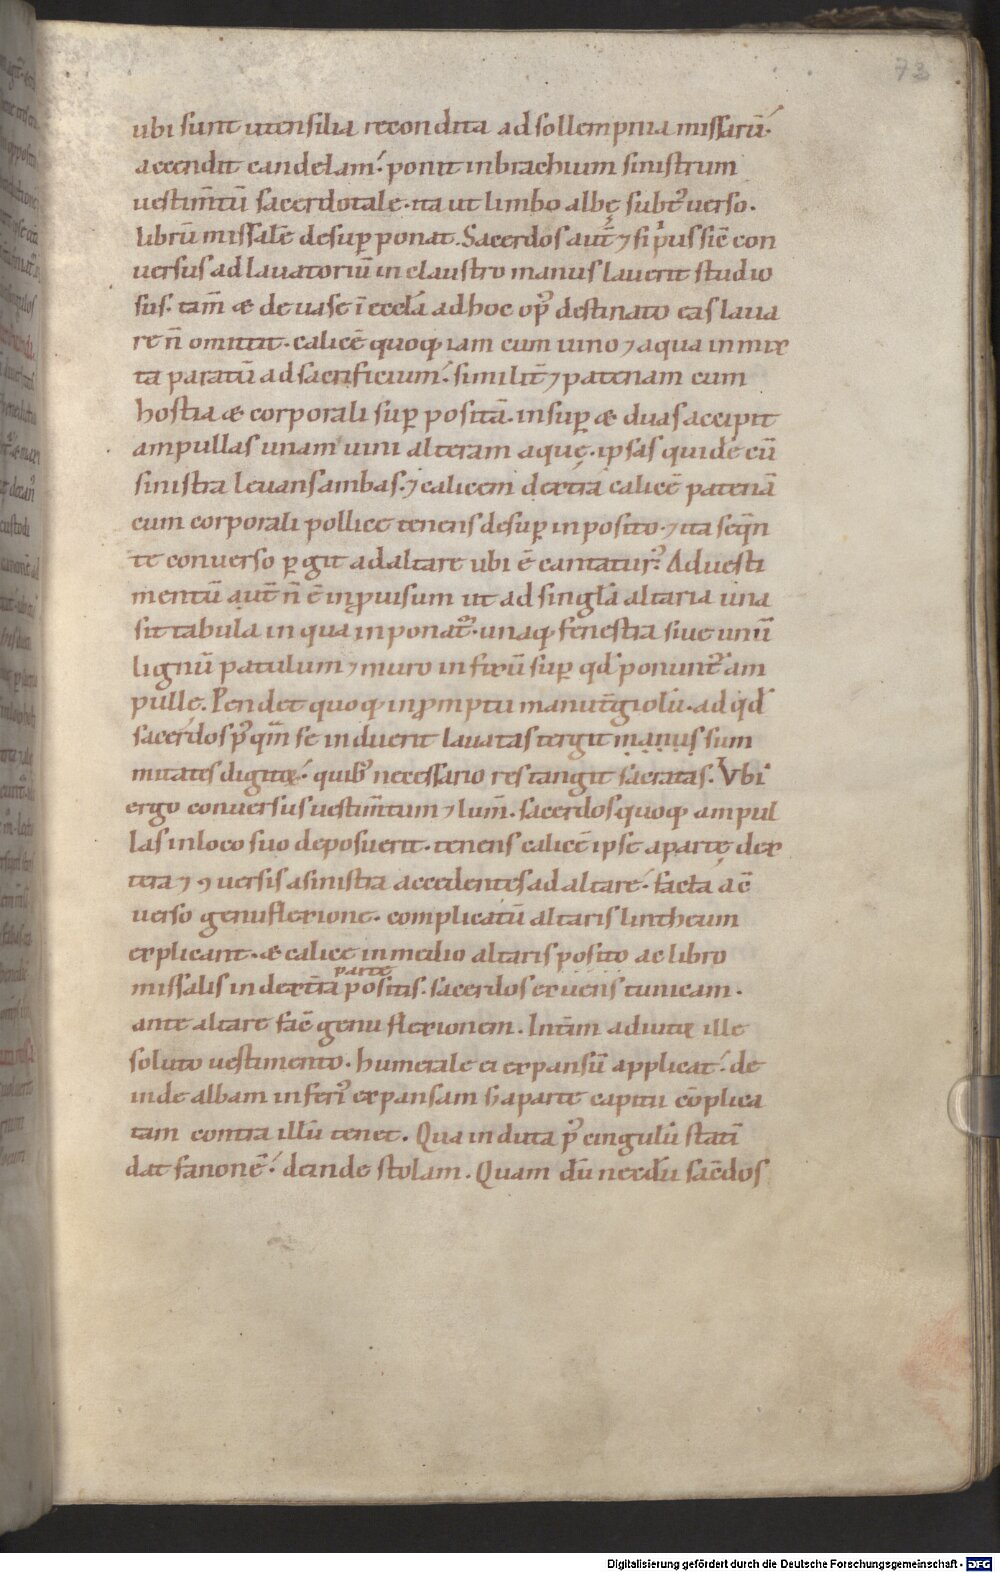 73
ubi sunt utensilia recondita ad sollempnia missarū·
accendit candelam· ponit in brachium sinistrum
uestim̄tū sacerdotale· ita ut limbo albę subt᷒ uerso·
librū missalē desup̱ ponat. Sacerdos aut̄ ⁊ si pⁱus siē con
uersus ad lauatoriū in claustro manus lauerit studio
sus· tam̄ & de uase ī eccl̄a ad hoc op᷒ destinato eas laua
re n̄ omittit· calicē quoq; iam cum uino ⁊ aqua inmix
ta paratū ad sacrificium· similit̄ ⁊ patenam cum
hostia & corporali sup̱ positā· insup̱ & duas accipit
ampullas unam uini alteram aquę· ipsas quidē cū
sinistra leuans ambas· ⁊ calicem dextra calicē patenā
cum corporali pollice tenens desup̱ inposito· ⁊ ita seq̄n
te conuerso p̱git ad altare ubi ē cantatur᷒· Ad uesti
mentū aut̄ n̄ ē inp̱uisum ut ad singl̄a altaria una
sit tabula in qua inponat᷒· unaq; fenestra siue unū
lignū patulum ⁊ muro infixū sup̱ qd̄ ponunt᷒ am
pullę. Pendet quoq; inpromptu manut̄giolū· ad qd̄
sacerdos p᷒ qm̄ se induerit lauatas tergit manus sum
mitates digitoꝝ· quib᷒ necessario res tangit sacratas. Vbi
ergo conuersus uestim̄tum ⁊ lum̄· sacerdos quoq; ampul
las in loco suo deposuerit· tenens calicē ipse a partę dex
tera ⁊ ꝯuersis a sinistra accedentes ad altare· facta a ē
uerso genuflexione· complicatū altaris lintheum
explicant· & calice in medio altaris posito ac libro
parte
missalis in dextra positis· sacerdos exuens tunicam·
ante altare fac̄ genuflexionem. Int̄im adiutoꝝ ille
soluto uestimento· humerale ei expansū applicat· de
inde albam inferi᷒ expansam s; a parte capitii cōplica
tam contra illū tenet. Qua induta p᷒ cingulū statī
dat fanonē· deinde stolam. Quam dū necd̄ū sac̄dos
Digitalisierung gefördert durch die Deutsche Forschungsgemeinschaft - DFG